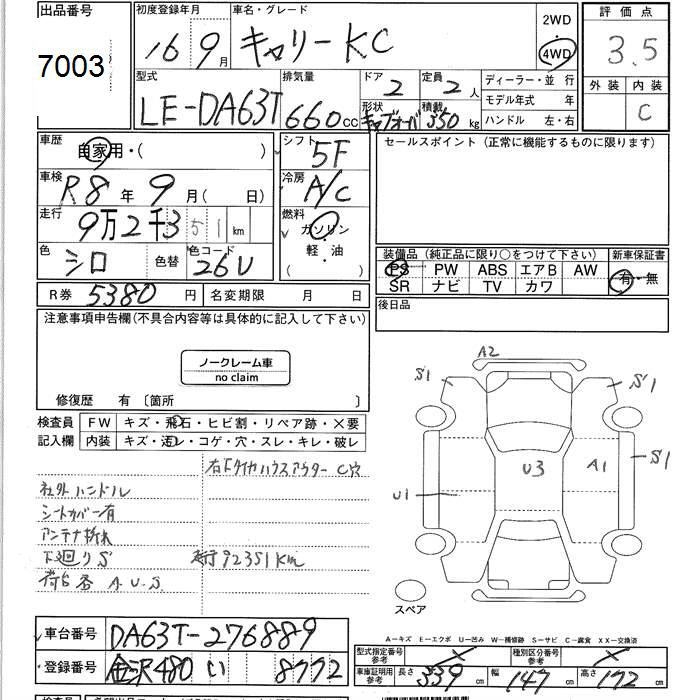 出品番号
7003
初度登録年月
16 9月
車名・グレード
キャリー KC
2WD
4WD
評価点
3.5
外装 内装
C
型式
LE-DA63T
排気量
660cc
ドア
2
定員
2人
形状
キャブオーバ
積載
350kg
ディーラー・並行
モデル年式 年
ハンドル 左・右
車歴
自家用・( )
シフト
5F
セールスポイント(正常に機能するものに限ります)
車検
R8年 9月( 日)
冷房
A/C
走行
9万2千351km
燃料
ガソリン
軽・油
( )
色
シロ
色替
色コード
26U
装備品(純正品に限り○をつけて下さい)
PS PW ABS エアB AW
SR ナビ TV カワ
新車保証書
有・無
R券 5380円
名変期限 月 日
後日品
注意事項申告欄(不具合内容等は具体的に記入して下さい)
ノークレーム車
no claim
修復歴 有〔箇所 〕
検査員
記入欄
FW キズ・飛石・ヒビ割・リペア跡・×要
内装 キズ・汚レ・コゲ・穴・スレ・キレ・破レ
右F タイヤハウスアウター C穴
社外ハンドル
シートカバー有
アンテナ折れ
下廻りS
走行92351km
荷台各 A.U.S.
A2
S1
S1
U3
A1
S1
U1
スペア
車台番号
DA63T-276889
登録番号
金沢480 い 8772
A−キズ E−エクボ U−凹み W−補修跡 S−サビ C−腐食 XX−交換済
型式指定番号
参考
種別区分番号
参考
車庫証明用
参考
長さ 339cm
幅 147cm
高さ 172cm